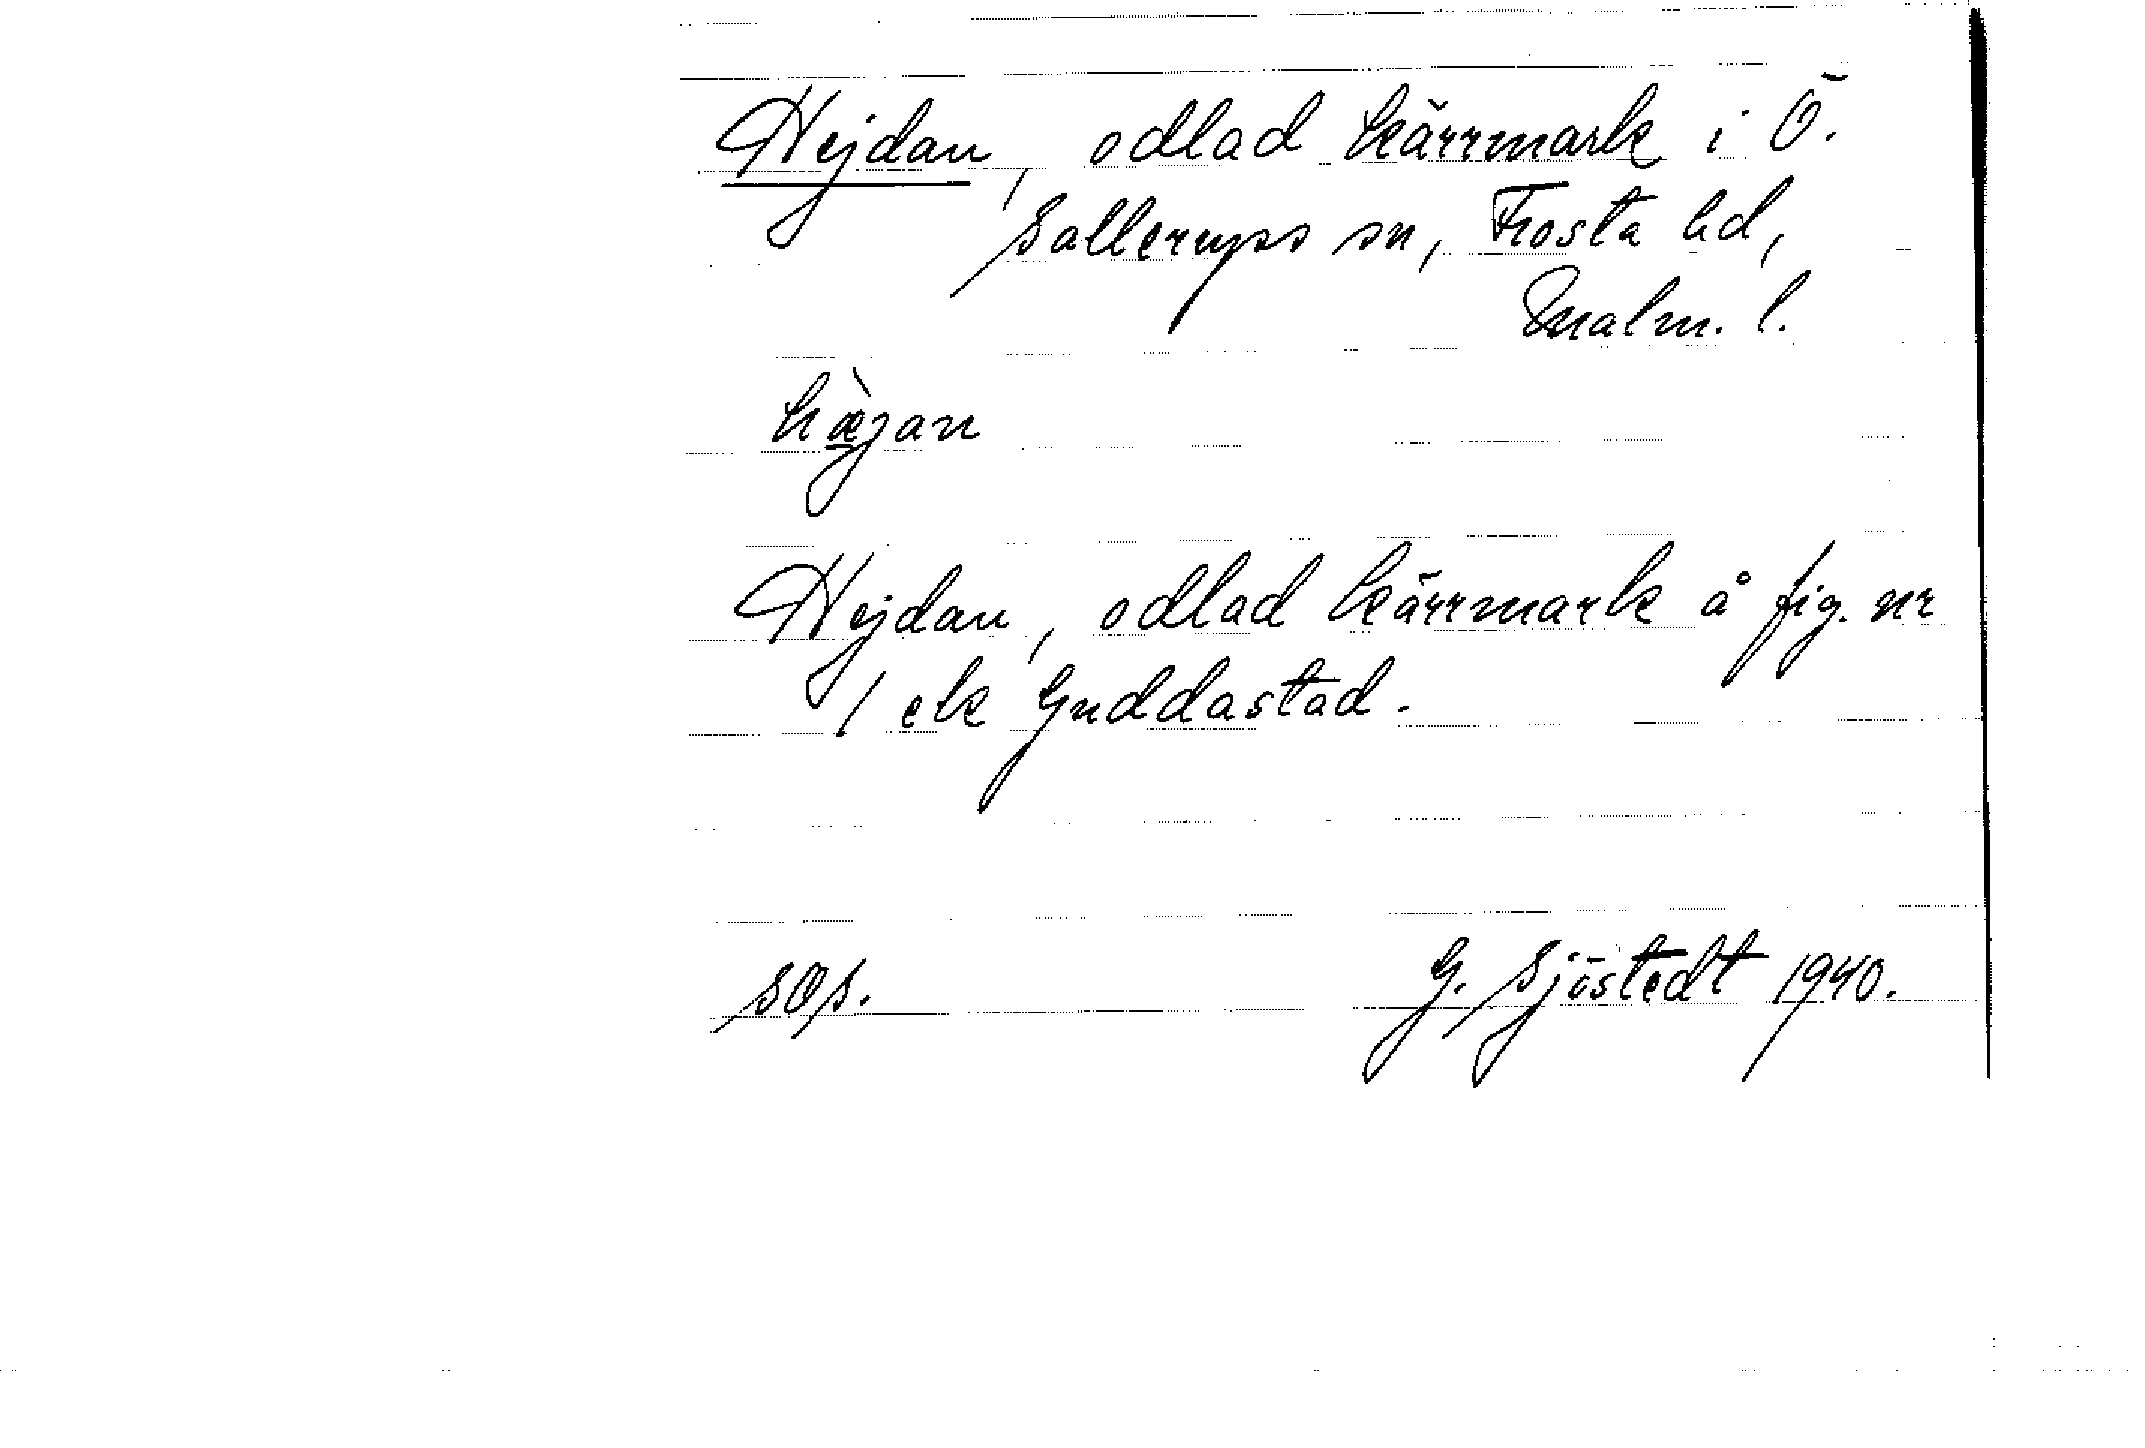 Hejdan, odlad kärrmark i Ö.
Sallerups sn, Frosta hd,
Malm. l.
hæ̀jan
Hejdan, odlad kärrmark å fig. nr
1 ek Guddastad.
sOs. G. Sjöstedt 1940.